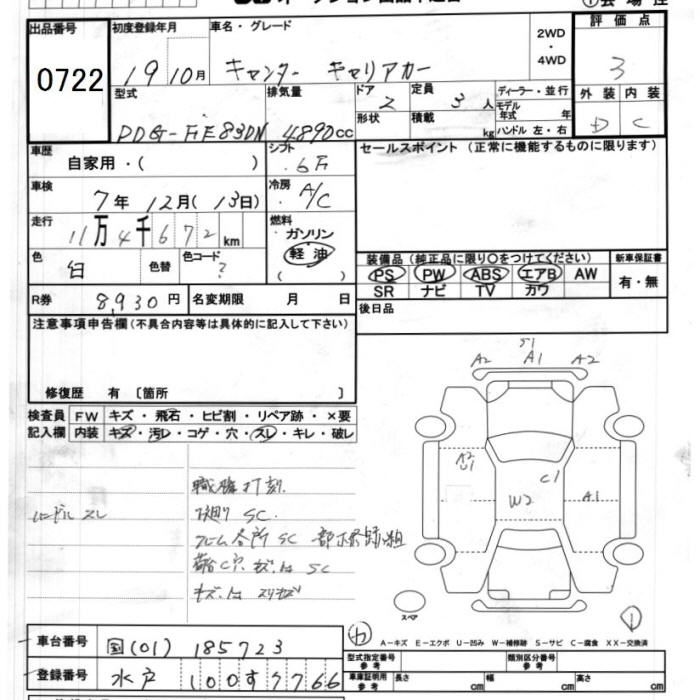 出品番号 0722
初度登録年月 19 10月
車名・グレード キャンター キャリアカー
2WD・4WD
評価点 3
外装 D 内装 C
型式 PDG-FE83DN
排気量 4890cc
ドア 2
形状
定員 3人
積載 kg
ディーラー・並行
モデル年式 年
ハンドル 左・右
車歴 自家用・( )
シフト 6F
セールスポイント(正常に機能するものに限ります)
車検 7年 12月(13日)
冷房 A/C
走行 11万4千672km
燃料 ガソリン 軽油 ( )
色 白 色替 色コード ?
装備品(純正品に限り〇をつけてください) 新車保証書
PS PW ABS エアB AW 有・無
SR ナビ TV カワ
R券 8,930円 名変期限 月 日
後日品
注意事項申告欄(不具合内容等は具体的に記入して下さい)
修復歴 有 〔箇所 〕
検査員記入欄 FW キズ・飛石・ヒビ割・リペア跡・×要
内装 キズ・汚レ・コゲ・穴・スレ・キレ・破レ
S1
A2 A1 A2
A2
U1
C1
W2
A1
職権打刻
ハンドル スレ
下廻り SC
フレーム各所 SC
スペア
A-キズ E-エクボ U-凹み W-補修跡 S-サビ C-腐食 XX-交換済
車台番号 国(01) 185723
登録番号 水戸 100す7766
型式指定番号 参考 類別区分番号 参考
車庫証明用 参考 長さ cm 幅 cm 高さ cm